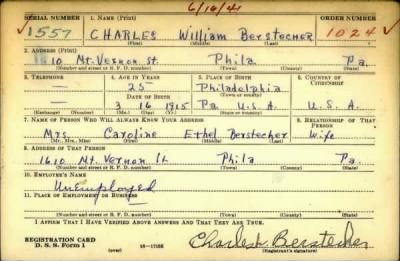 6/16/41
SERIAL NUMBER 1. NAME (Print) ORDER NUMBER
1557 CHARLES William Berstecher 1024
(First) (Middle) (Last)
2. ADDRESS (Print)
1610 Mt. Vernon St. Phila Pa.
(Number and street or R. F. D. number) (Town) (County) (State)
3. TELEPHONE 4. AGE IN YEARS 5. PLACE OF BIRTH 6. COUNTRY OF CITIZENSHIP
— 25 Philadelphia
DATE OF BIRTH (Town or county)
— 3 16 1915 Pa U.S.A. U.S.A.
(Exchange) (Number) (Mo.) (Day) (Yr.) (State or country)
7. NAME OF PERSON WHO WILL ALWAYS KNOW YOUR ADDRESS 8. RELATIONSHIP OF THAT PERSON
Mrs. Caroline Ethel Berstecher Wife
(Mr., Mrs., Miss) (First) (Middle) (Last)
9. ADDRESS OF THAT PERSON
1610 Mt. Vernon St. Phila Pa.
(Number and street or R. F. D. number) (Town) (County) (State)
10. EMPLOYER'S NAME
Unemployed
11. PLACE OF EMPLOYMENT OR BUSINESS
(Number and street or R. F. D. number) (Town) (County) (State)
I AFFIRM THAT I HAVE VERIFIED ABOVE ANSWERS AND THAT THEY ARE TRUE.
REGISTRATION CARD
D. S. S. Form 1 (over) 16—17105 Charles Berstecher
(Registrant's signature)